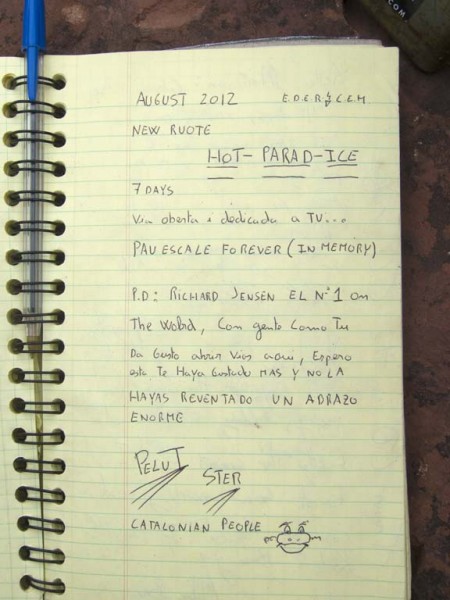 AUGUST 2012 E.D.E.R y C.E.M
NEW RUOTE
HOT-PARAD-ICE
7 DAYS
Via oberta i dedicada a TU...
PAU ESCALE FOREVER (IN MEMORY)
P.D: RICHARD JENSEN EL Nº1 on
The World, Con gente Como Tu
Da Gusto abrir Vias aqui, Espero
esta Te Haya Gustado MAS Y NO LA
HAYAS REVENTADO UN ADRAZO
ENORME
PELUT
STER
CATALONIAN PEOPLE
COM